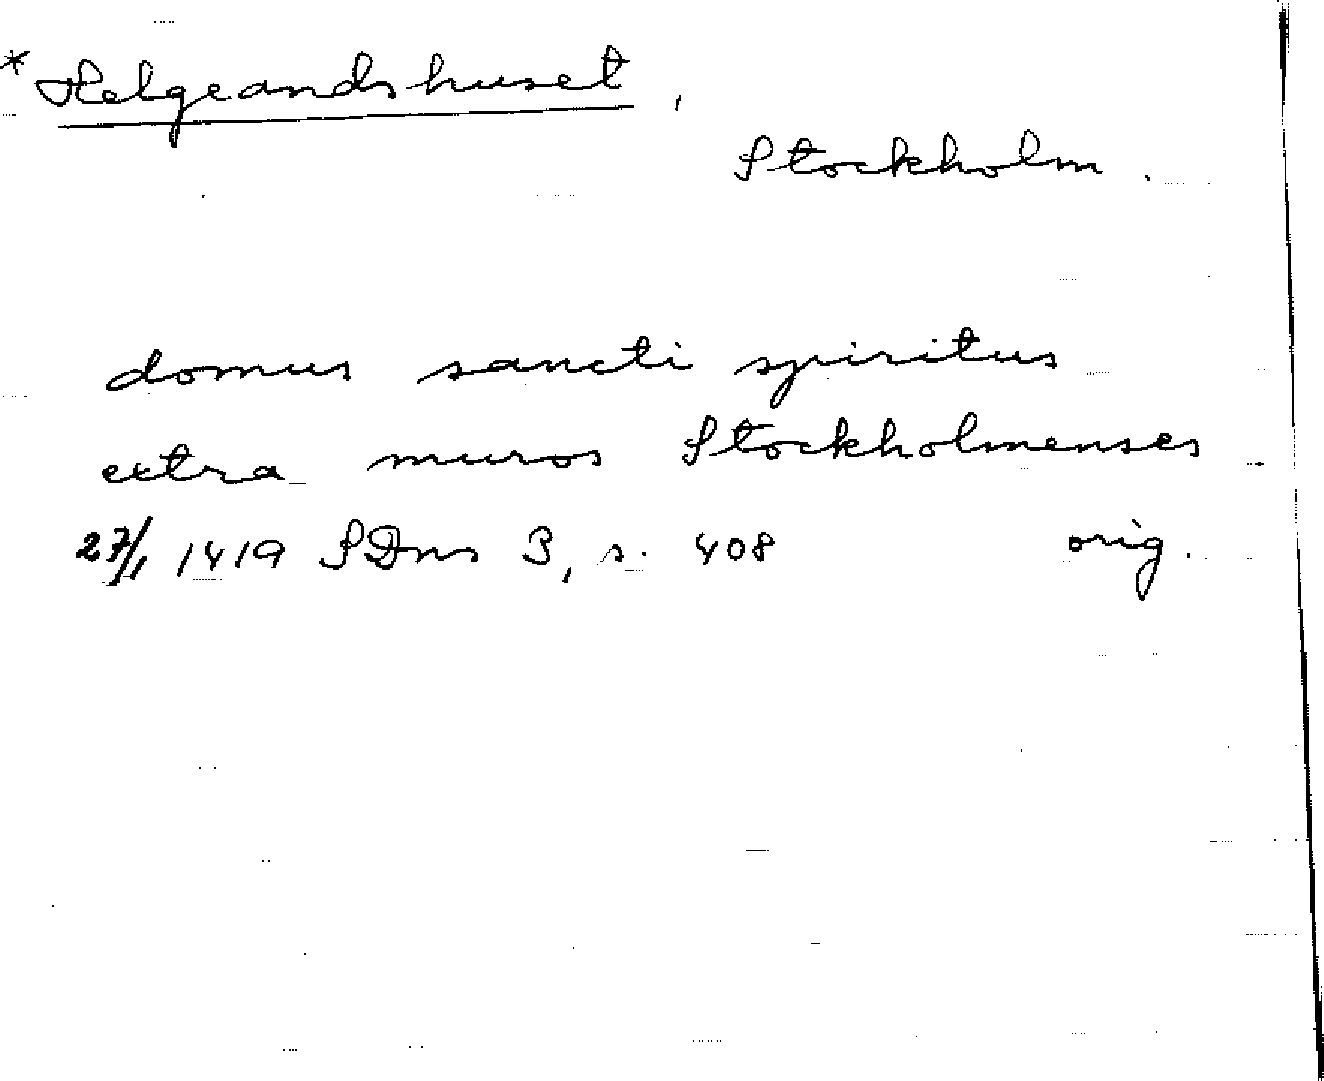 * Helgeandshuset,
Stockholm.
domus sancti spiritus
extra muros Stockholmenses
27/1 1419 SDns 3, s. 408 orig.